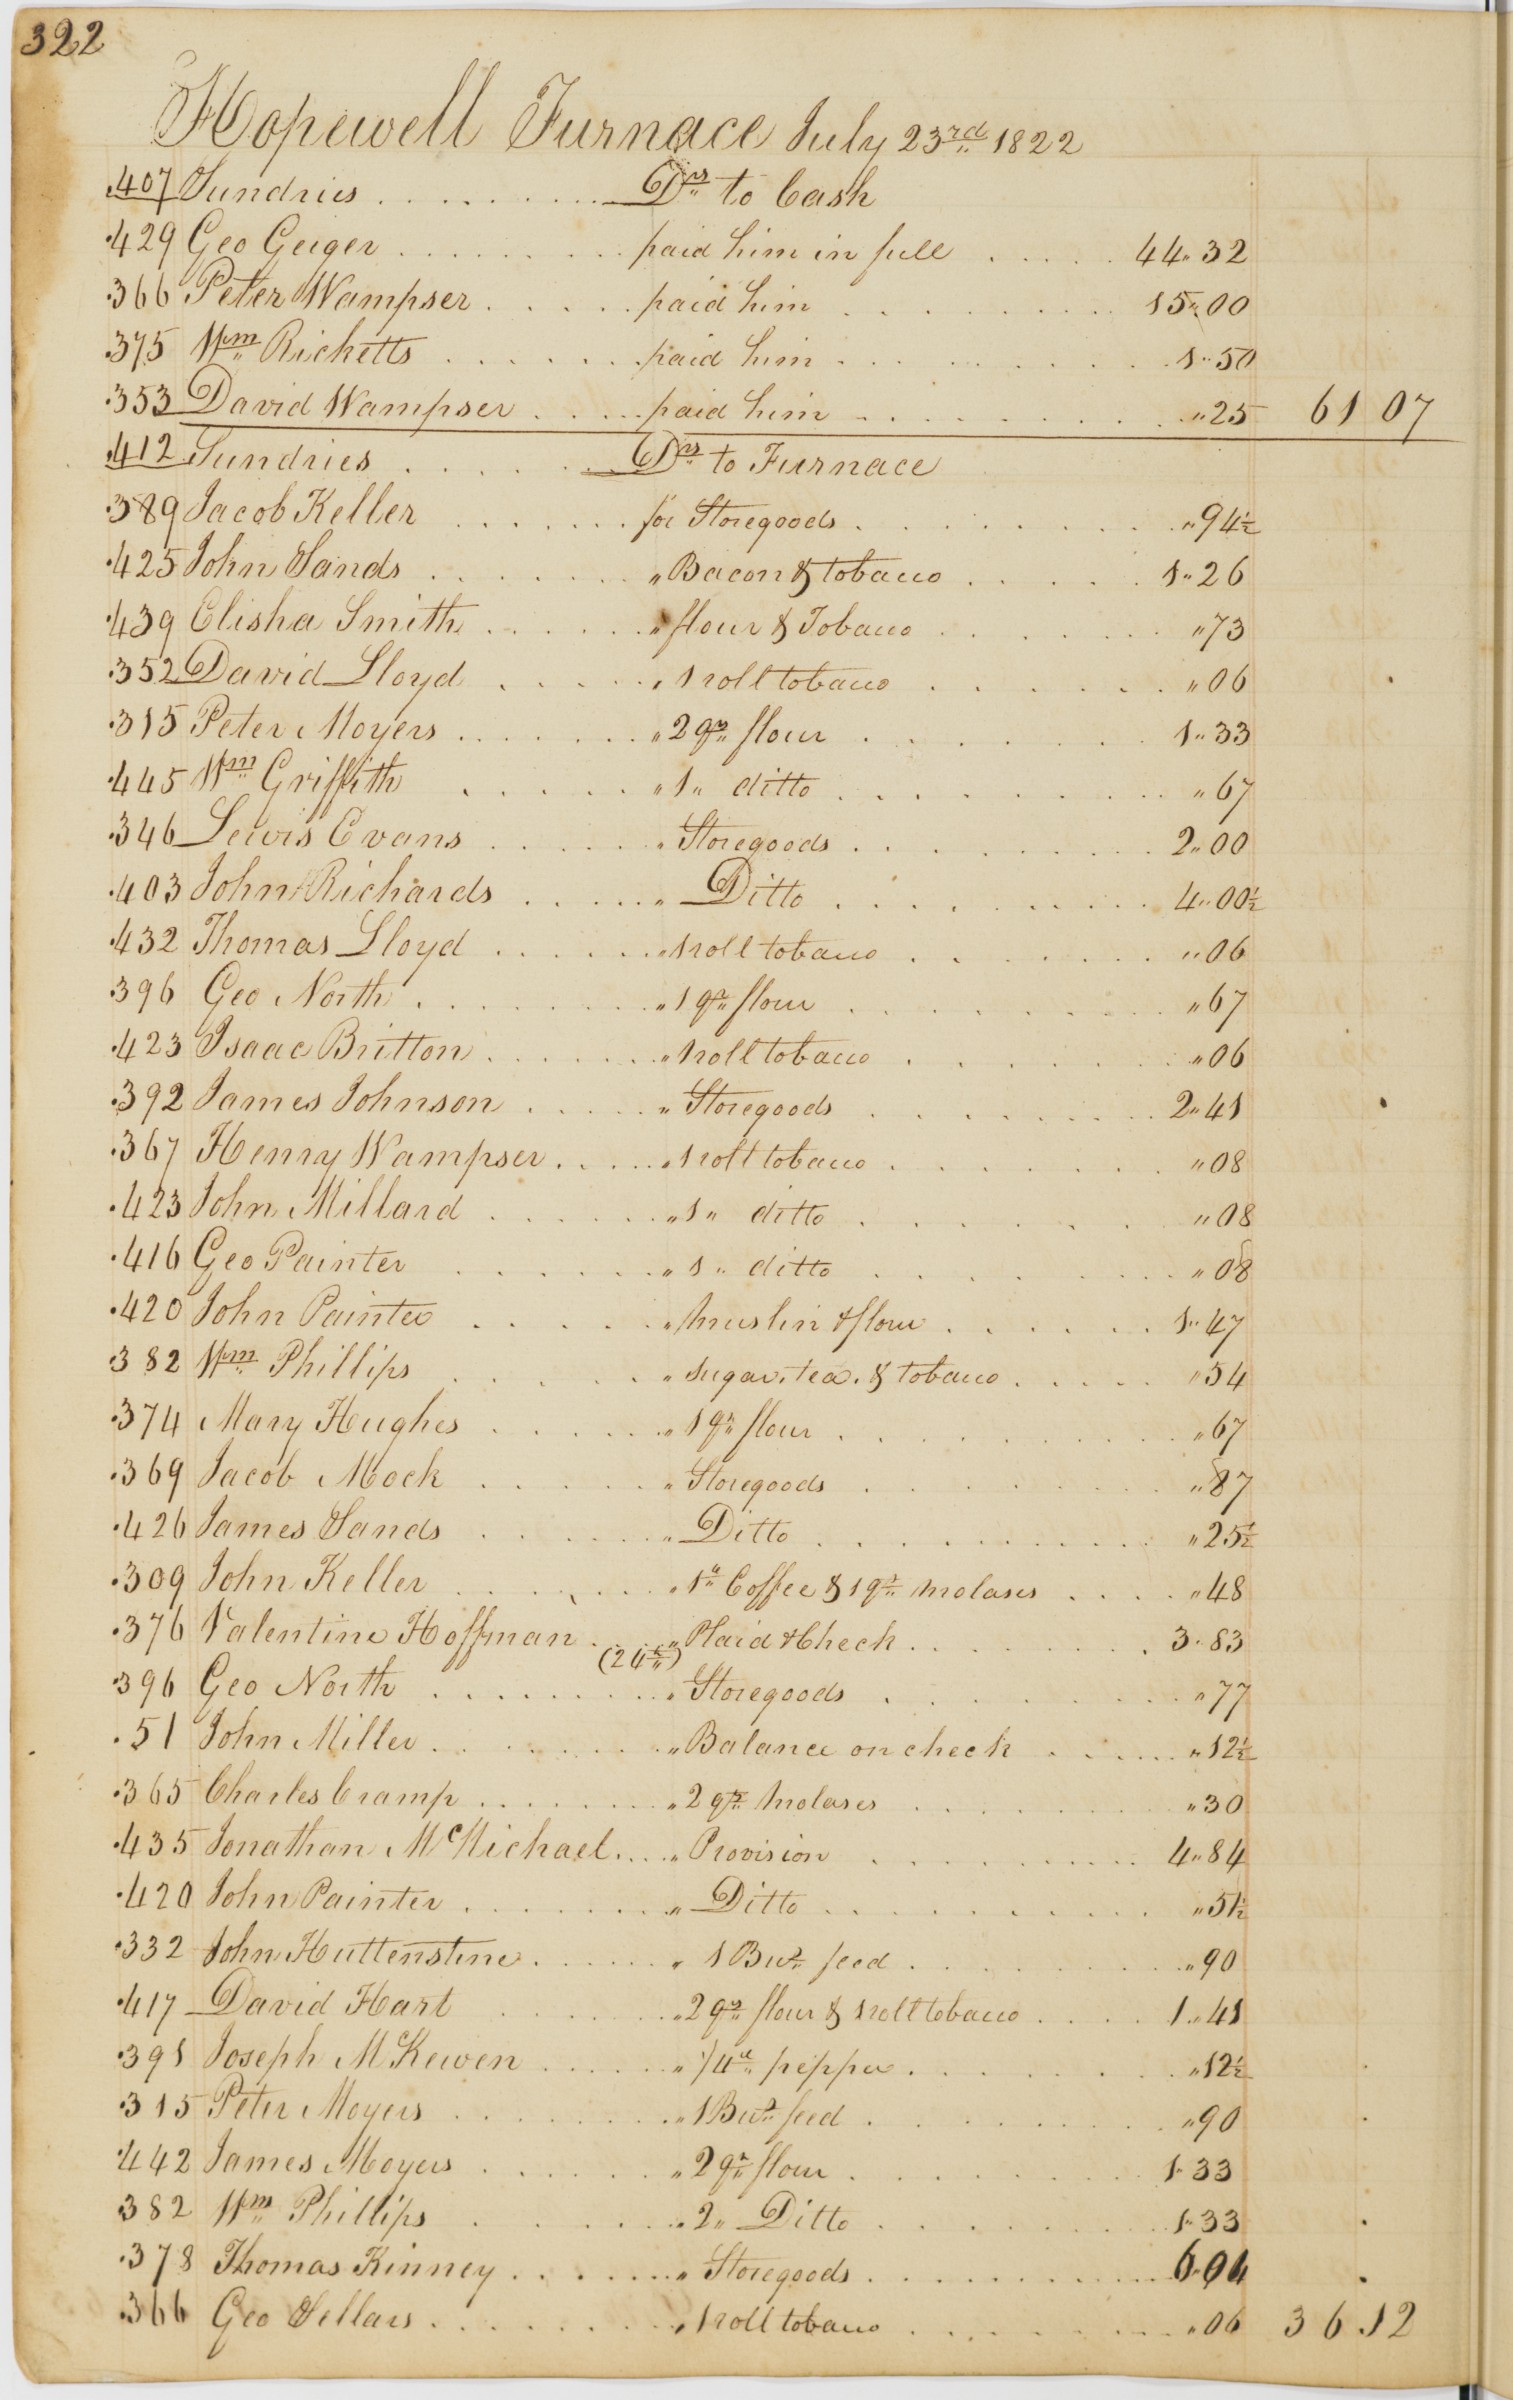 322
Hopewell Furnace July 23rd 1822
407 Sundries . . . . . . . . . Drs to Cash
429 Geo Geiger . . . . . . . . . paid him in full . . . . . 44" 32
366 Peter Wampser . . . . . paid him . . . . . . . . . 15" 00
375 Wm Ricketts . . . . . . . paid him . . . . . . . . . 1" 50
353 David Wampser . . . . . paid him . . . . . . . . . " 25 61 07
412 Sundries . . . . . . . Drs to Furnace
389 Jacob Keller . . . . . . . for Storegoods . . . . . . . . " 94½
425 John Sands . . . . . . . " Bacon & tobacco . . . . . 1" 26
439 Elisha Smith . . . . . . " flour & Tobacco . . . . . . " 73
352 David Lloyd . . . . . " 1 roll tobacco . . . . . . " 06
315 Peter Moyers . . . . . . . " 2 qrs flour . . . . . . . 1" 33
445 Wm Griffith . . . . . " 1" ditto . . . . . . . . . " 67
346 Lewis Evans . . . . . . " Storegoods . . . . . . . . . 2" 00
403 John Richards . . . . . " Ditto . . . . . . . . . 4" 00½
432 Thomas Lloyd . . . . . . " 1 roll tobacco . . . . . . . " 06
396 Geo North . . . . . . . . " 1 qr flour . . . . . . . . . " 67
423 Isaac Britton . . . . . . . " 1 roll tobacco . . . . . . . " 06
392 James Johnson . . . . . " Storegoods . . . . . . . . 2" 41
367 Henry Wampser . . . . . " 1 roll tobacco . . . . . . . " 08
423 John Millard . . . . . . " 1" ditto . . . . . . " 08
416 Geo Painter . . . . . . " 1" ditto . . . . . . . " 08
420 John Painter . . . . . " Muslin & flour . . . . . . 1" 47
382 Wm Phillips . . . . . " sugar, tea, & tobacco . . . . . " 54
374 Mary Hughes . . . . . . " 1 qr flour . . . . . . . . . " 67
369 Jacob Mock . . . . . . " Storegoods . . . . . . . . " 87
426 James Sands . . . . . . " Ditto . . . . . . . . . . " 25½
309 John Keller . . . . . . . " 1 lb Coffee & 1 qt molases . . . . " 48
376 Valentine Hoffman . . . . " Plaid & Check . . . . . . . . 3" 83
(24th)
396 Geo North . . . . . . . . . " Storegoods . . . . . . . . " 77
51 John Miller . . . . . . . . " Balance on check . . . . . " 12½
365 Charles Cramp . . . . . . . " 2 qts Molases . . . . . . . . " 30
435 Jonathan McMichael . . . . " Provision . . . . . . . . . 4" 84
420 John Painter . . . . . . . " Ditto . . . . . . . . . . " 51½
332 John Huttenstine . . . . . . " 1 Bus feed . . . . . . . . . " 90
417 David Hart . . . . . . " 2 qrs flour & 1 roll tobacco . . . . 1" 41
391 Joseph McKewen . . . . . " 1/4 lb pepper . . . . . . . . " 12½
315 Peter Moyers . . . . . . . " 1 Bus feed . . . . . . . . " 90
442 James Moyers . . . . . . " 2 qr flour . . . . . . . . . 1" 33
382 Wm Phillips . . . . . . " 2" Ditto . . . . . . . . . 1" 33
378 Thomas Kinney . . . . . . " Storegoods . . . . . . . . . . 6" 04
366 Geo Sellars . . . . . . . . . " 1 roll tobacco . . . . . . . . " 06 36 12